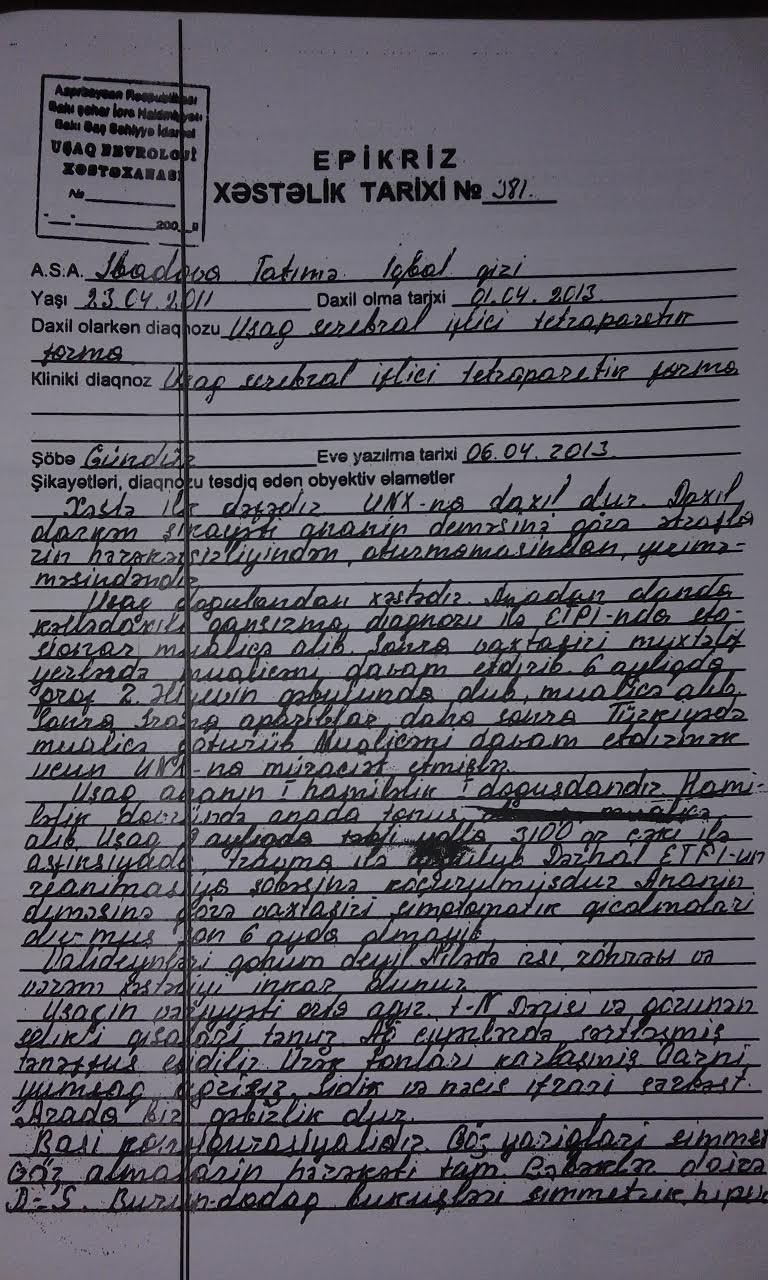 Azərbaycan Respublikası
Bakı şəhər İcra Hakimiyyəti
Bakı Baş Səhiyyə İdarəsi
UŞAQ NEVROLOJİ
XƏSTƏXANASI
№
200 g
EPİKRİZ
XƏSTƏLİK TARİXİ № 381.
A.S.A. İbadova Fatimə İqbal qizi
Yaşı 23.04.2011 Daxil olma tarixi 01.04.2013.
Daxil olarkən diaqnozu Uşaq serebral iflici tetraparetik
forma
Kliniki diaqnoz Uşaq serebral iflici tetraparetik forma
Şöbə Gündüz Evə yazılma tarixi 06.04.2013.
Şikayətləri, diaqnozu təsdiq edən obyektiv əlamətlər
Xəstə ilk dəfədir UNX-na daxil olur. Daxil
olarkən şikayəti ananin deməsinə görə ətrafla
rin hərəkətsizliyindən, oturmamasindan, yerimə-
məsindəndir
Uşaq doğulandan xəstədir. Anadan olanda
kəllədaxili qansizma diaqnozu ilə ETPİ-nda sta-
sionar mualicə alib. Sonra vaxtaşiri muxtəlif
yerlərdə mualicəni davam etdirib. 6 ayliqda
prof Z. Əliyevin qəbulunda olub, mualicə alib.
Sonra İrana apariblar, daha sonra Türkiyədə
mualicə götürüb Mualicəni davam etdirmək
ucun UNX-na müraciət etmişlər.
Uşaq ananin I hamiləlik I doğuşdandir. Hami-
ləlik dövründə anada tonus mualicə
alib. Uşaq 9 ayliqda təbii yolla 3100 qr çəki ilə
asfiksiyada, travma ilə Dərhal ETPİ-un
reanimasiya şöbəsinə köçürülmüşdur Ananin
deməsinə görə vaxtaşiri simptomatik qicolmalari
olurmuş son 6 ayda olmayib.
Valideynləri qohum deyil. Ailədə irsi, zöhrəvi və
vərəm xəstəliyi inkar olunur.
Uşağin vəziyyəti orta ağir. t-N Dərisi və görunən
selikli qişalari təmiz. Ağ ciyərlərdə sərtləşmiş
tənəffus eşidilir. Urək tonlari karlaşmiş Qarni
yumşaq ağrisiz. Sidik və nəcis ifrazi sərbəst.
Arada bir qəbizlik olur.
Başi konfiqurasiyalidir. Göz yariqlari simmet
Göz almalarin hərəkəti tam Bəbəklər dairə
D=S. Burun-dodaq bukuşləri simmetrik,